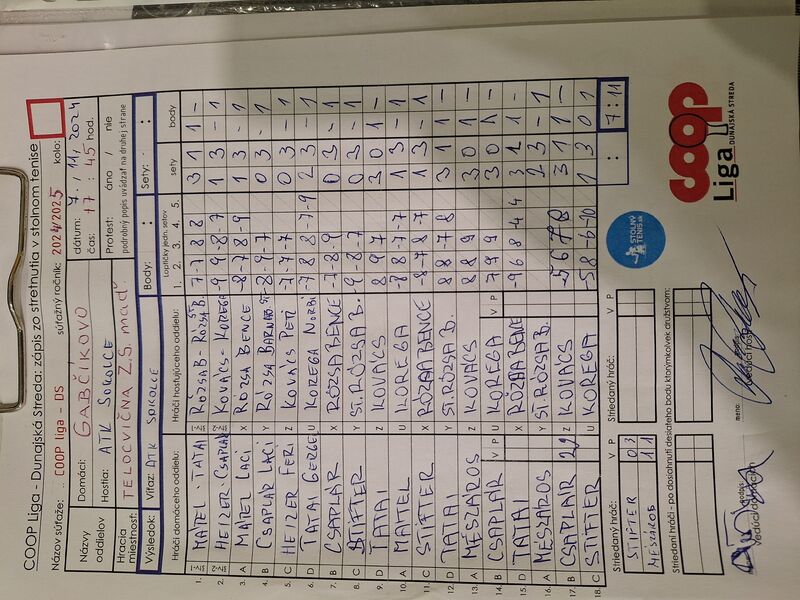 COOP Liga - Dunajská Streda: zápis zo stretnutia v stolnom tenise
Názov súťaže: COOP liga - DS súťažný ročník: 2024/2025 kolo:
Názvy oddielov
Domáci: GABČÍKOVO
Hostia: ATK SOKOLCE
dátum: 7. / 11. / 2024
čas: 17 : 45 hod.
Hracia miestnosť: TELOCVIČNA Z.Š. maď
Protest: áno / nie
podrobný popis uvádzať na druhej strane
Výsledok: Víťaz: ATK SOKOLCE Body: : Sety: :
Hráči domáceho oddielu: Hráči hosťujúceho oddielu: Loptičky jedn. setov sety body
1. 2. 3. 4. 5.
1. MATEL - TATAI RÓZSA B - RÓZSA B. ŠT 7 -7 8 8 3 1 1 -
2. HEIZER - CSAPLÁR KOVÁCS - KOREGA -9 9 -8 -7 1 3 - 1
3. A MATEL LACI X RÓZSA BENCE -8 7 -8 -9 1 3 - 1
4. B CSAPLÁR LACI Y RÓZSA BARNAB ŠT -8 -9 -7 0 3 - 1
5. C HEIZER FERI Z KOVÁCS PETI -7 -7 -7 0 3 - 1
6. D TATAI GERGEL KOREGA NORBI -7 8 8 -7 -9 2 3 - 1
7. B CSAPLÁR X RÓZSA BENCE -7 -8 -9 0 3 - 1
8. C STIFTER Y ST. RÓZSA B. -9 -8 -7 0 3 - 1
9. D TATAI Z KOVÁCS 8 9 7 3 0 1 -
10. A MATEL U KOREGA -8 8 -7 -7 1 3 - 1
11. C STIFTER X RÓZSA BENCE -8 7 -8 -7 1 3 - 1
12. D TATAI Y ST. RÓZSA B. 8 8 -7 8 3 1 1 -
13. A MÉSZÁROS Z KOVÁCS 8 8 9 3 0 1 -
14. B CSAPLÁR V P U KOREGA V P 7 9 9 3 0 1 -
15. D TATAI X RÓZSA BENCE -9 6 8 4 4 3 1 1 -
16. A MÉSZÁROS Y ST. RÓZSA B. 2 3 - 1
17. B CSAPLÁR Z KOVÁCS -5 6 7 8 3 1 1 -
18. C STIFTER U KOREGA -5 8 -6 -10 1 3 0 1
: 7 : 11
Striedaný hráč: V P
STIFTER 0 3
MÉSZÁROS 1 1
Striedaný hráč: V P
Striedaní hráči - po dosiahnutí desiateho bodu ktorýmkoľvek družstvom:
podpis
Vedúci domácich
meno
Vedúci hostí
STOLNÝ
TENIS.sk
COOP
Liga
DUNAJSKÁ STREDA